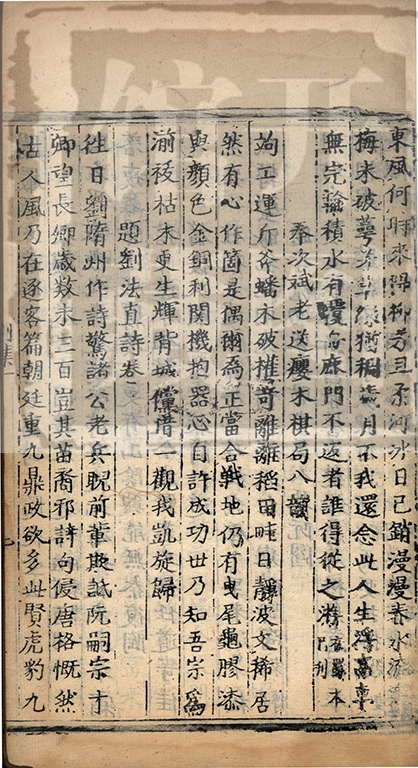 東風何時來綠柳芳且柔河冰日已銷漫漫春水流
梅未破萼芳草緣猶稠歲月不我還念此人生浮高臺
無完論積水有覆舟麻門不返者誰得從之游
奉次斌老送癭木棋局八韻
竘工運斤斧蟠木破權奇離離稻田畦日靜波文稀居
然有心作箇是偶爾為正當合戰地仍有曳尾龜膠漆
與顏色金銅利關機抱器心自許成功世乃知吾宗為
湔祓枯木更生輝背城儻借一觀我凱旋歸
題劉法直詩卷
往日劉隋州作詩驚諸公老兵睨前輩欺詆阮嗣宗才
卿望長卿歲數未三百豈其苗裔邪詩句侵唐格慨然
古人風乃在逐客篇朝廷重九鼎政欲多此賢虎豹九